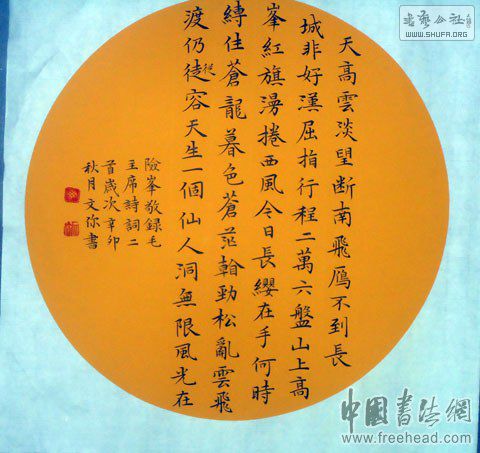 天高雲淡望断南飛鴈不到長
城非好漢屈指行程二萬六盤山上高
峯紅旗漫捲西風今日長纓在手何時
縛住蒼龍暮色蒼茫翰勁松亂雲飛
渡仍徒從容天生一個仙人洞無限風光在
險峯敬錄毛
主席詩詞二
首歲次辛卯
秋月文弥書
書藝公社
WWW.SHUFA.ORG
中國書法網
http://www.freehead.com/